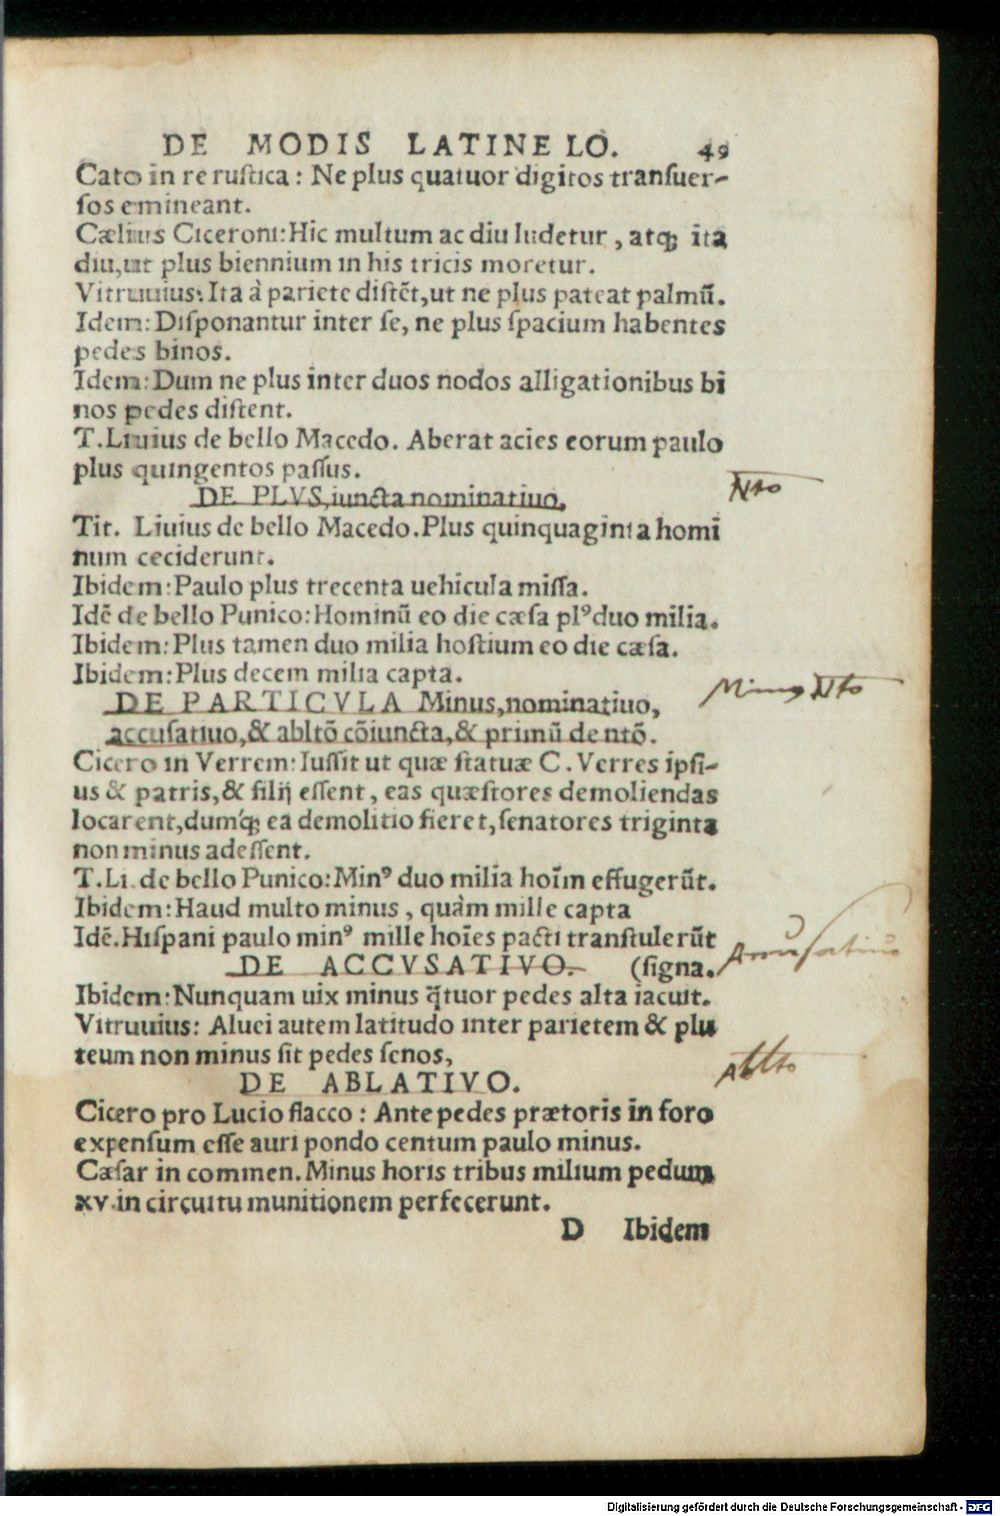 DE MODIS LATINE LO. 49
Cato in re rustica: Ne plus quatuor digitos transuer-
sos emineant.
Cælius Ciceroni: Hic multum ac diu ludetur, atq; ita
diu, ut plus biennium in his tricis moretur.
Vitruuius: Ita à pariete distẽt, ut ne plus pateat palmũ.
Idem: Disponantur inter se, ne plus spacium habentes
pedes binos.
Idem: Dum ne plus inter duos nodos alligationibus bi
nos pedes distent.
T. Liuius de bello Macedo. Aberat acies eorum paulo
plus quingentos passus.
DE PLVS, iuncta nominatiuo. Nto
Tit. Liuius de bello Macedo. Plus quinquaginta homi
num ceciderunt.
Ibidem: Paulo plus trecenta uehicula missa.
Idẽ de bello Punico: Hominũ eo die cæsa plꝰ duo milia.
Ibidem: Plus tamen duo milia hostium eo die cæsa.
Ibidem: Plus decem milia capta.
DE PARTICVLA Minus, nominatiuo, Minus Nto
accusatiuo, & abltõ cõiuncta, & primũ de ntõ.
Cicero in Verrem: Iussit ut quæ statuæ C. Verres ipsi-
us & patris, & filij essent, eas quæstores demoliendas
locarent, dumq́; ea demolitio fieret, senatores triginta
non minus adessent.
T. Li. de bello Punico: Minꝰ duo milia hoĩm effugerũt.
Ibidem: Haud multo minus, quàm mille capta
Idẽ. Hispani paulo minꝰ mille hoĩes pacti transtulerũt
DE ACCVSATIVO. (signa. Accusatiuo
Ibidem: Nunquam uix minus q̃tuor pedes alta iacuit.
Vitruuius: Aluei autem latitudo inter parietem & plu
teum non minus sit pedes senos,
DE ABLATIVO. Ablto
Cicero pro Lucio flacco: Ante pedes prætoris in foro
expensum esse auri pondo centum paulo minus.
Cæsar in commen. Minus horis tribus milium pedum
xv. in circuitu munitionem perfecerunt.
D Ibidem
Digitalisierung gefördert durch die Deutsche Forschungsgemeinschaft - DFG